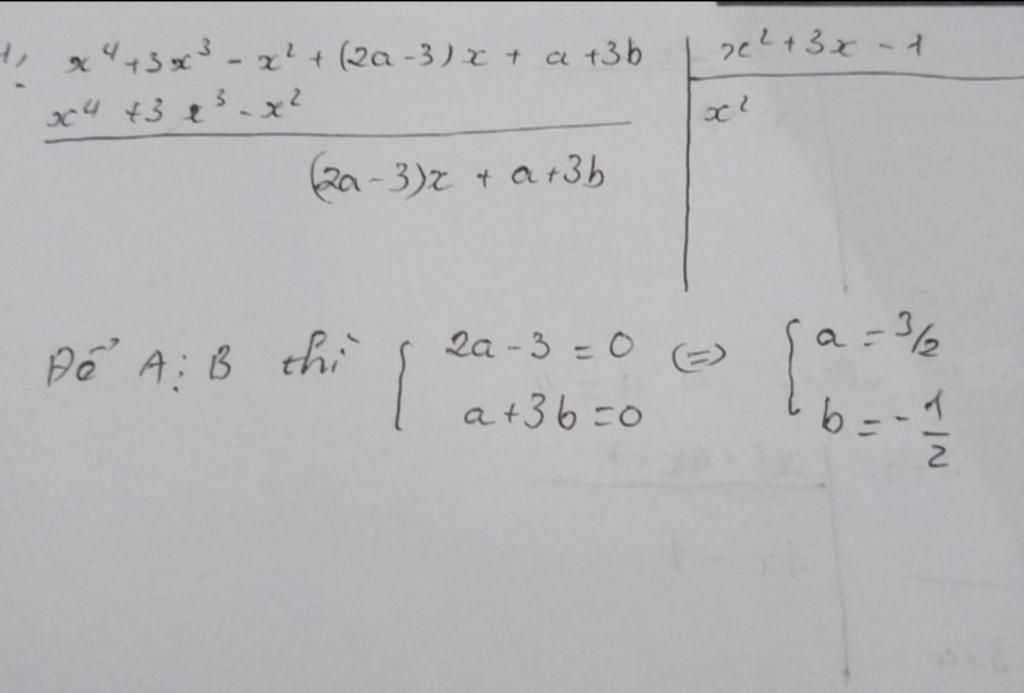 1, x⁴ + 3x³ - x² + (2a - 3)x + a + 3b | x² + 3x - 1
x⁴ + 3x³ - x² | x²
(2a - 3)x + a + 3b
Để A ⋮ B thì { 2a - 3 = 0 (=) { a = 3/2
a + 3b = 0 b = - 1/2